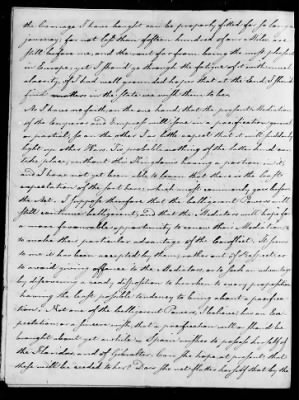 the Carriage I have bought can be properly fitted for so long a
journey; for not less than fifteen hundred of our Miles are
still before me, and the want far from being the most pleasant
in Europe; yet I should go through the fatigue of it with much
alacrity, if I had well grounded hopes that at the End, I should
find matters in the State we wish them to be.
As I have no faith, on the one hand, that the present Mediation
of the Emperor and Empress will issue in a pacification general
or partial, so on the other I as little expect that it will suddenly
light up other Wars. Tis probable nothing of the latter kind can
take place, without this Kingdom's having a portion in it,
and I have not yet been able to learn that there is the least
expectation of the sort here, which most commonly goes before
the Act. I suppose therefore that the belligerent Powers will
still continue belligerent, and that the Mediators will hope for
a more favourable opportunity to renew their Mediation, &
to make their particular advantage of the Conflict. It seems
to me it has been accepted by them, rather out of Respect, or
to avoid giving offence to the Mediators, or to seek an advantage
by discovering a ready disposition to hearken to every proposition
having the least possible tendency to bring about a pacifica-
tion. Not one of the belligerent Powers, I believe, has an Ex-
pectation, or a sincere wish, that a pacification will or should be
brought about yet awhile. Spain wishes to possess herself of
the Floridas and of Gibraltar. Can she hope at present that
these will be ceded to her? Does she not flatter herself that by the